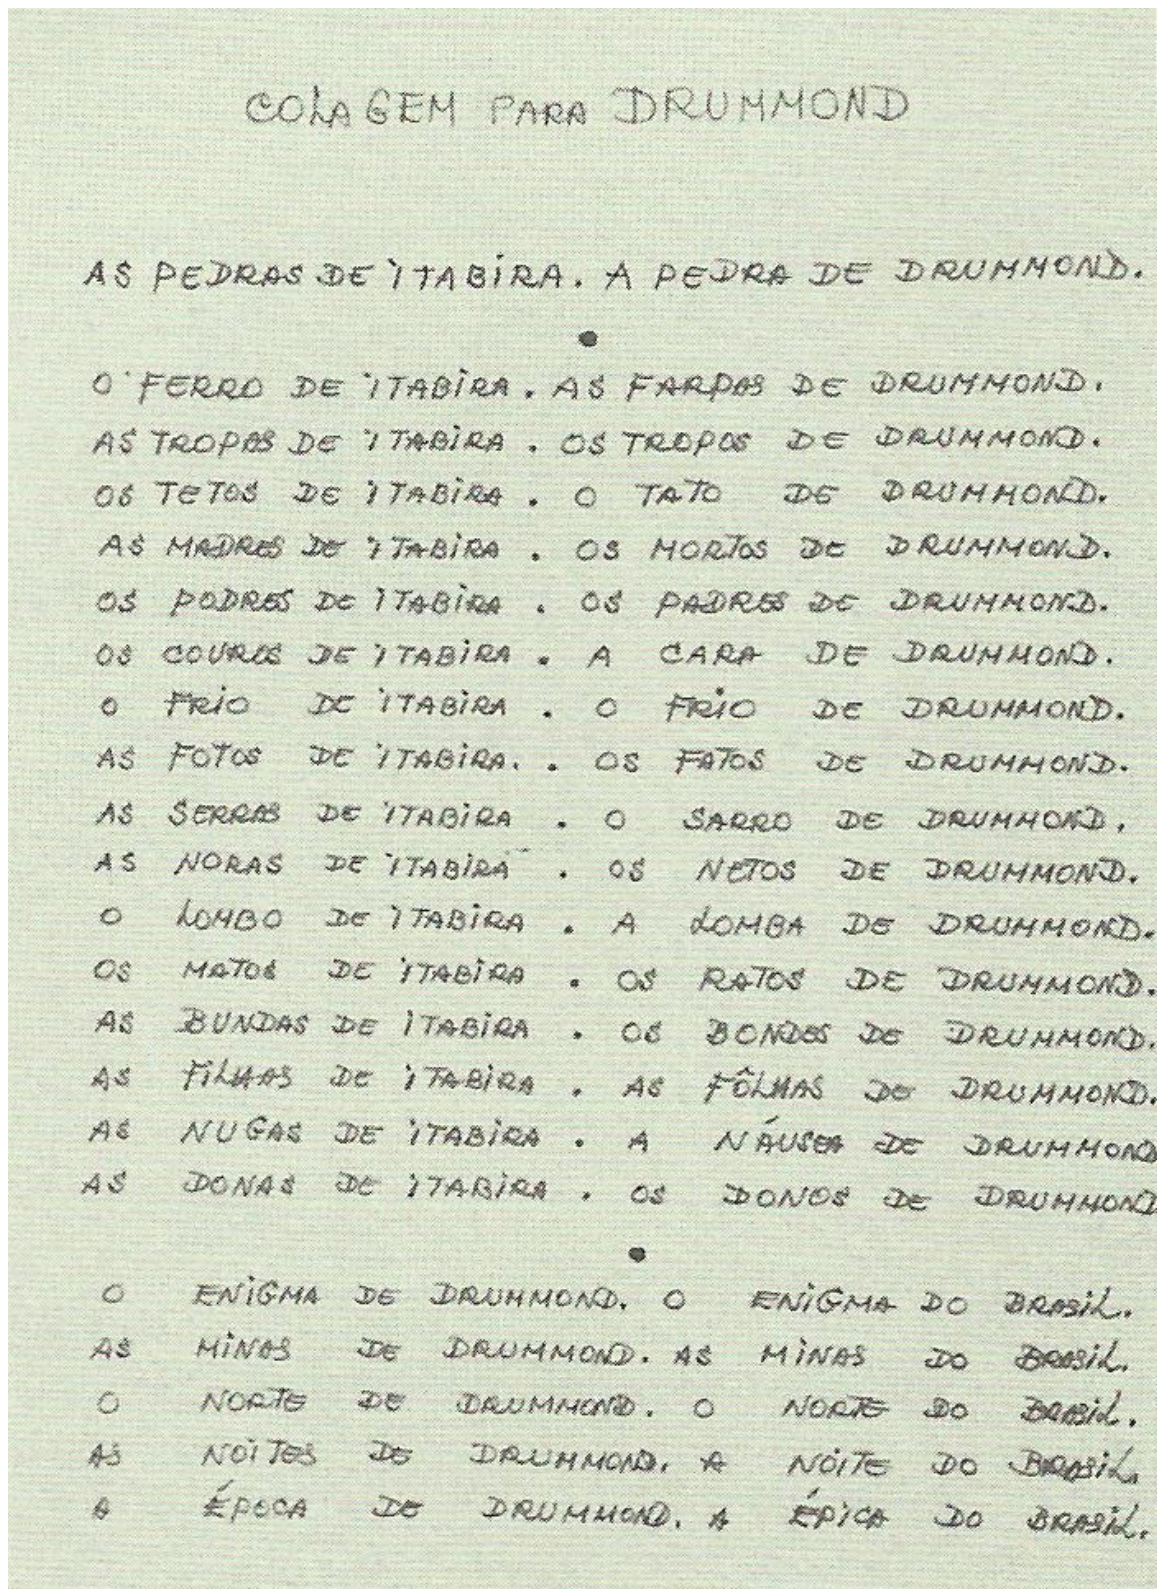 COLAGEM PARA DRUMMOND
AS PEDRAS DE ITABIRA. A PEDRA DE DRUMMOND.
•
O FERRO DE ITABIRA. AS FARPAS DE DRUMMOND.
AS TROPAS DE ITABIRA. OS TROPOS DE DRUMMOND.
OS TETOS DE ITABIRA. O TATO DE DRUMMOND.
AS MADRES DE ITABIRA. OS MORTOS DE DRUMMOND.
OS PODRES DE ITABIRA. OS PADRES DE DRUMMOND.
OS COUROS DE ITABIRA. A CARA DE DRUMMOND.
O FRIO DE ITABIRA. O FRIO DE DRUMMOND.
AS FOTOS DE ITABIRA. . OS FATOS DE DRUMMOND.
AS SERRAS DE ITABIRA. O SARRO DE DRUMMOND.
AS NORAS DE ITABIRA. OS NETOS DE DRUMMOND.
O LOMBO DE ITABIRA. A LOMBA DE DRUMMOND.
OS MATOS DE ITABIRA. OS RATOS DE DRUMMOND.
AS BUNDAS DE ITABIRA. OS BONDES DE DRUMMOND.
AS FILHAS DE ITABIRA. AS FÔLHAS DE DRUMMOND.
AS NUGAS DE ITABIRA. A NÁUSEA DE DRUMMOND
AS DONAS DE ITABIRA. OS DONOS DE DRUMMOND
•
O ENIGMA DE DRUMMOND. O ENIGMA DO BRASIL.
AS MINAS DE DRUMMOND. AS MINAS DO BRASIL.
O NORTE DE DRUMMOND. O NORTE DO BRASIL.
AS NOITES DE DRUMMOND. A NOITE DO BRASIL.
A ÉPOCA DE DRUMMOND. A ÉPICA DO BRASIL.